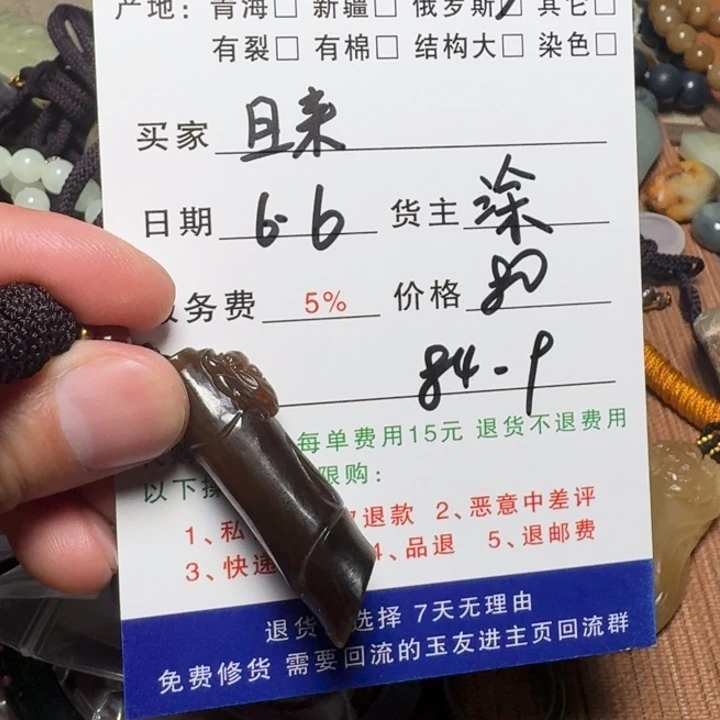 产地：青海□ 新疆□ 俄罗斯☑ 其它□
有裂□ 有棉□ 结构大□ 染色□
买家 且来
日期 6·6 货主 涂
务费 5% 价格 80
84-9
每单费用15元 退货不退费用
以下 限购：
1、私 退款 2、恶意中差评
3、快速 4、品退 5、退邮费
退货 选择 7天无理由
免费修货 需要回流的玉友进主页回流群